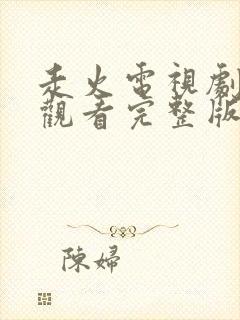 天火電視劇
觀看完整版
陳婦